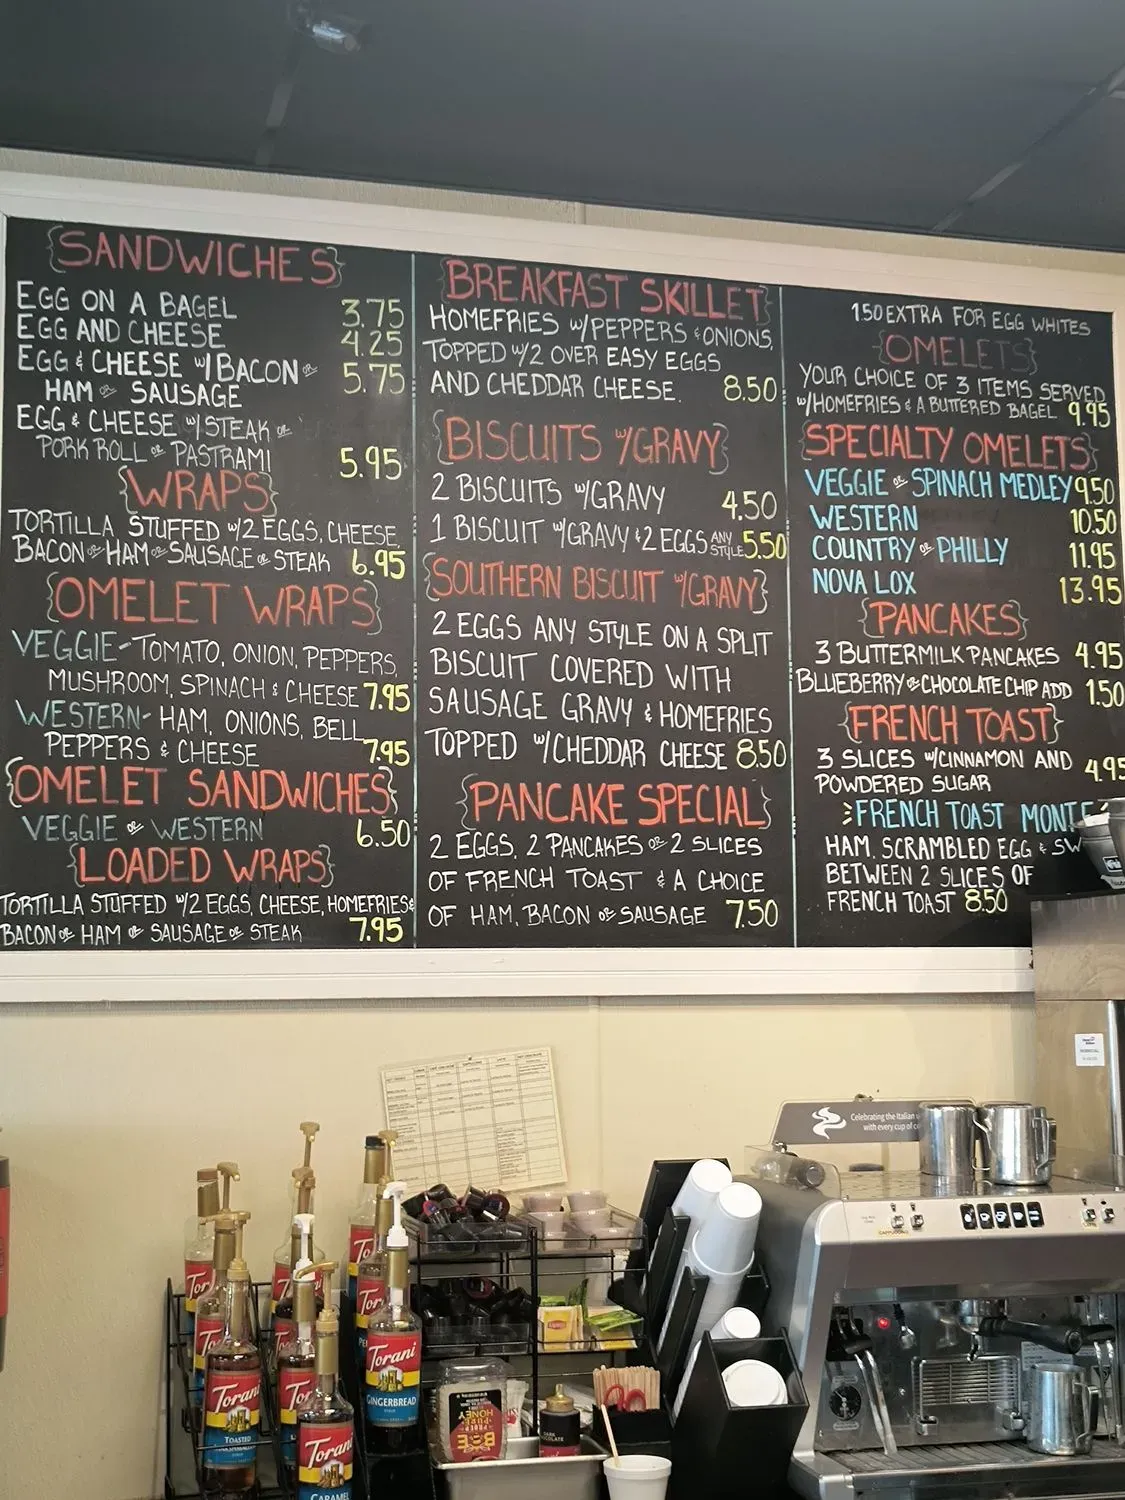 {SANDWICHES}
EGG ON A BAGEL 3.75
EGG AND CHEESE 4.25
EGG & CHEESE W/BACON OR 5.75
HAM OR SAUSAGE
EGG & CHEESE W/STEAK OR
PORK ROLL OR PASTRAMI 5.95
{WRAPS}
TORTILLA STUFFED W/2 EGGS, CHEESE,
BACON OR HAM OR SAUSAGE OR STEAK 6.95
{OMELET WRAPS}
VEGGIE- TOMATO, ONION, PEPPERS,
MUSHROOM, SPINACH & CHEESE 7.95
WESTERN- HAM, ONIONS, BELL
PEPPERS & CHEESE 7.95
{OMELET SANDWICHES}
VEGGIE OR WESTERN 6.50
{LOADED WRAPS}
TORTILLA STUFFED W/2 EGGS, CHEESE, HOMEFRIES &
BACON OR HAM OR SAUSAGE OR STEAK 7.95
{BREAKFAST SKILLET}
HOMEFRIES W/PEPPERS & ONIONS,
TOPPED W/2 OVER EASY EGGS
AND CHEDDAR CHEESE. 8.50
{BISCUITS W/GRAVY}
2 BISCUITS W/GRAVY 4.50
1 BISCUIT W/GRAVY & 2 EGGS ANY STYLE 5.50
{SOUTHERN BISCUIT W/GRAVY}
2 EGGS ANY STYLE ON A SPLIT
BISCUIT COVERED WITH
SAUSAGE GRAVY & HOMEFRIES
TOPPED W/CHEDDAR CHEESE 8.50
{PANCAKE SPECIAL}
2 EGGS, 2 PANCAKES OR 2 SLICES
OF FRENCH TOAST & A CHOICE
OF HAM, BACON OR SAUSAGE 7.50
1.50 EXTRA FOR EGG WHITES
{OMELETS}
YOUR CHOICE OF 3 ITEMS SERVED
W/HOMEFRIES & A BUTTERED BAGEL 9.95
{SPECIALTY OMELETS}
VEGGIE OR SPINACH MEDLEY 9.50
WESTERN 10.50
COUNTRY OR PHILLY 11.95
NOVA LOX 13.95
{PANCAKES}
3 BUTTERMILK PANCAKES 4.95
BLUEBERRY OR CHOCOLATE CHIP ADD 1.50
{FRENCH TOAST}
3 SLICES W/CINNAMON AND 4.95
POWDERED SUGAR
FRENCH TOAST MONTE
HAM, SCRAMBLED EGG & SW
BETWEEN 2 SLICES OF
FRENCH TOAST 8.50
Celebrating the Italian
with every cup of
Torani
Torani
GINGERBREAD
Torani
TOASTED
Torani
CARAMEL
HONEY
DARK
CHOCOLATE